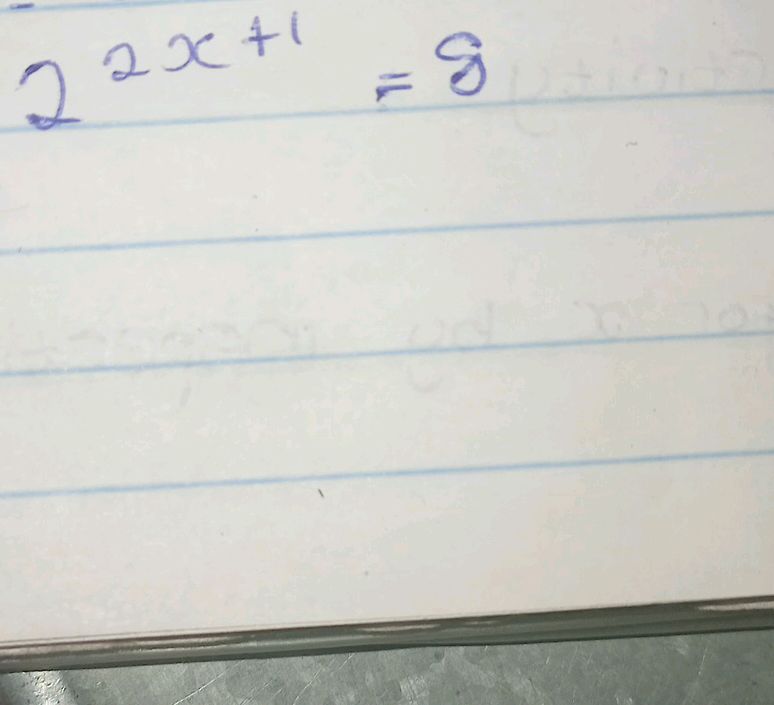 2^{2x+1} = 8